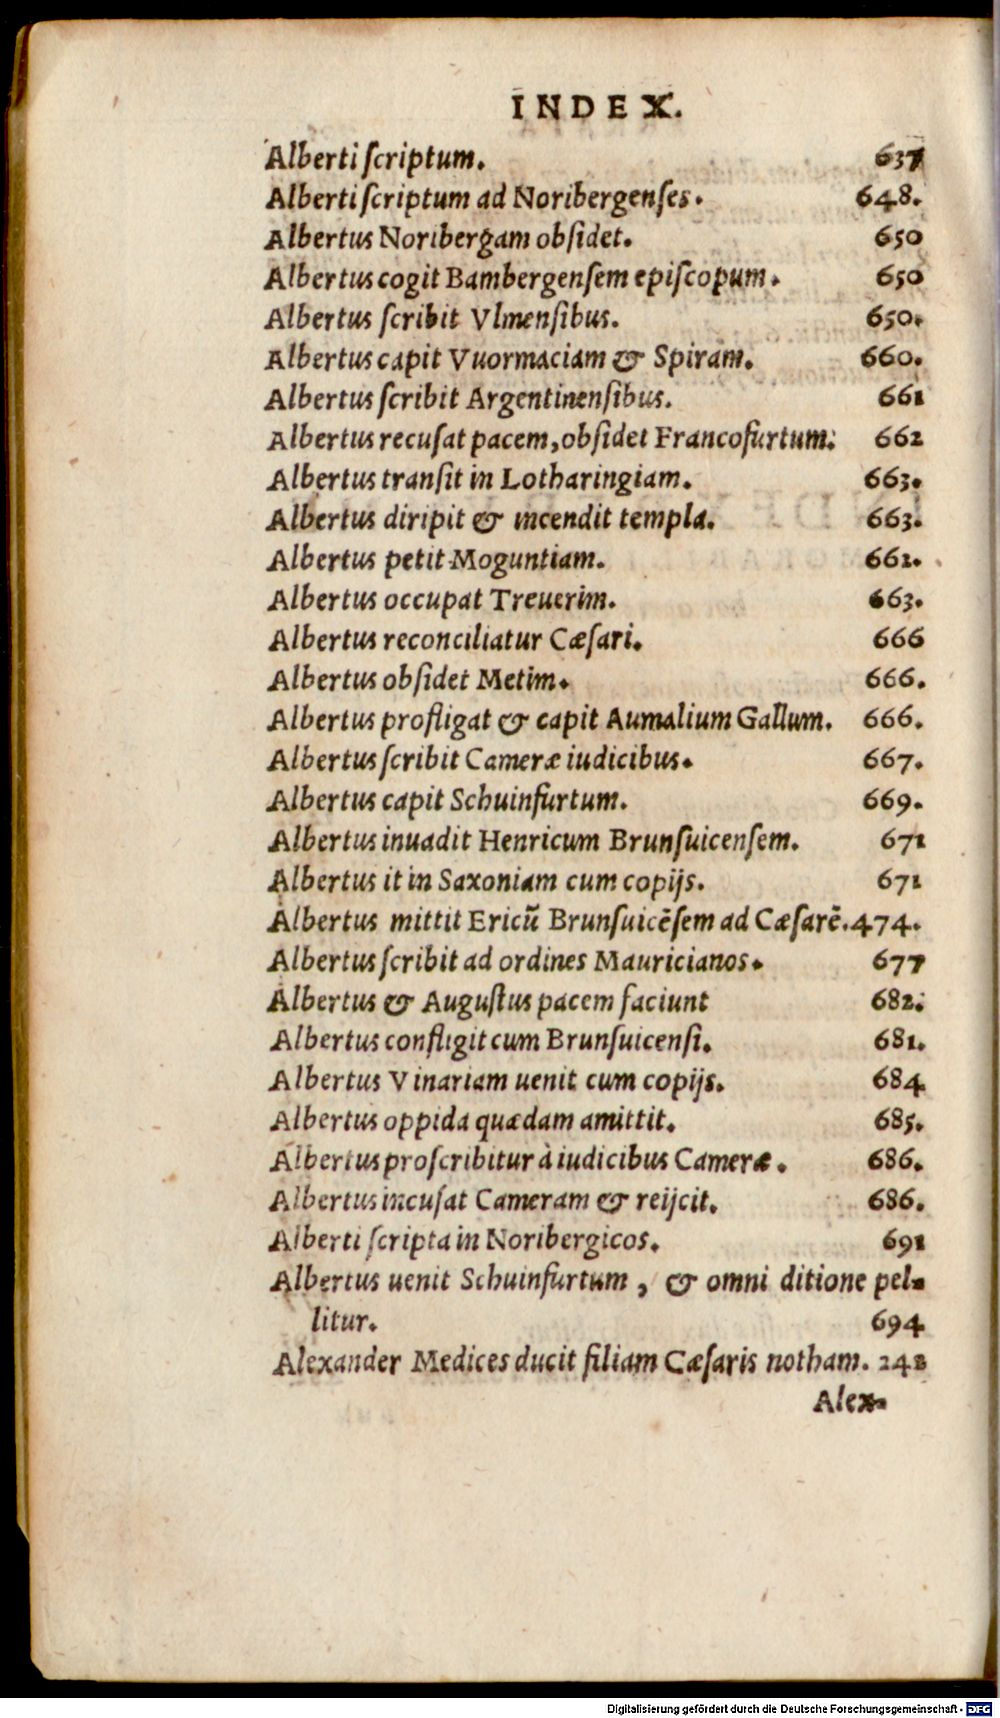 INDEX.
Alberti scriptum. 637
Alberti scriptum ad Noribergenses. 648.
Albertus Noribergam obsidet. 650
Albertus cogit Bambergensem episcopum. 650
Albertus scribit Vlmensibus. 650.
Albertus capit Vuormaciam & Spiram. 660.
Albertus scribit Argentinensibus. 661
Albertus recusat pacem, obsidet Francofurtum. 662
Albertus transit in Lotharingiam. 663.
Albertus diripit & incendit templa. 663.
Albertus petit Moguntiam. 662.
Albertus occupat Treuerim. 663.
Albertus reconciliatur Cæsari. 666
Albertus obsidet Metim. 666.
Albertus profligat & capit Aumalium Gallum. 666.
Albertus scribit Cameræ iudicibus. 667.
Albertus capit Schuinfurtum. 669.
Albertus inuadit Henricum Brunsuicensem. 671
Albertus it in Saxoniam cum copijs. 671
Albertus mittit Ericū Brunsuicēsem ad Cæsarē. 474.
Albertus scribit ad ordines Mauricianos. 677
Albertus & Augustus pacem faciunt 682.
Albertus confligit cum Brunsuicensi. 681.
Albertus Vinariam uenit cum copijs. 684
Albertus oppida quædam amittit. 685.
Albertus proscribitur à iudicibus Cameræ. 686.
Albertus incusat Cameram & reijcit. 686.
Alberti scripta in Noribergicos. 691
Albertus uenit Schuinfurtum, & omni ditione pel-
litur. 694
Alexander Medices ducit filiam Cæsaris notham. 242
Alex-
Digitalisierung gefördert durch die Deutsche Forschungsgemeinschaft - DFG